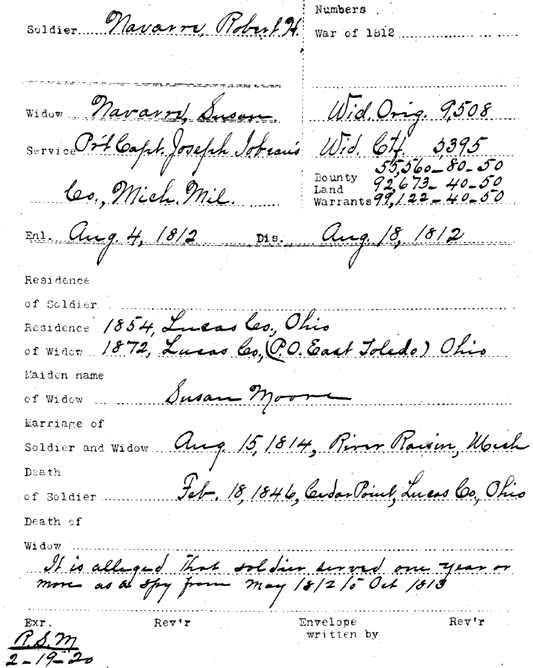 Numbers
Soldier Navarre, Robert H.
War of 1812
Widow Navarre, Susan Wid. Orig. 9,508
Service Pvt Capt. Joseph Wid. Ctf. 5395
55,560-80-50
Bounty
Land 92,673-40-50
Warrants 99,122-40-50
Co., Mich. Mil.
Enl. Aug. 4, 1812 Dis. Aug. 18, 1812
Residence
of Soldier
Residence 1854, Lucas Co., Ohio
of Widow 1872, Lucas Co., (P.O. East Toledo) Ohio
Maiden name
of Widow Susan Moore
Marriage of
Soldier and Widow Aug 15, 1814, River Raisin, Mich
Death
of Soldier Feb. 18, 1846, Cedar Point, Lucas Co, Ohio
Death of
Widow
It is alleged that soldier served one year or
more as a spy from May 1812 to Oct 1813
Exr. Rev'r Envelope Rev'r
written by
R.S.M
2-19-20